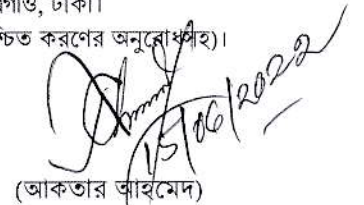 ঢাকা।
নিশ্চিত করণের অনুরোধসহ)।
15/06/2022
(আকতার আহমেদ)